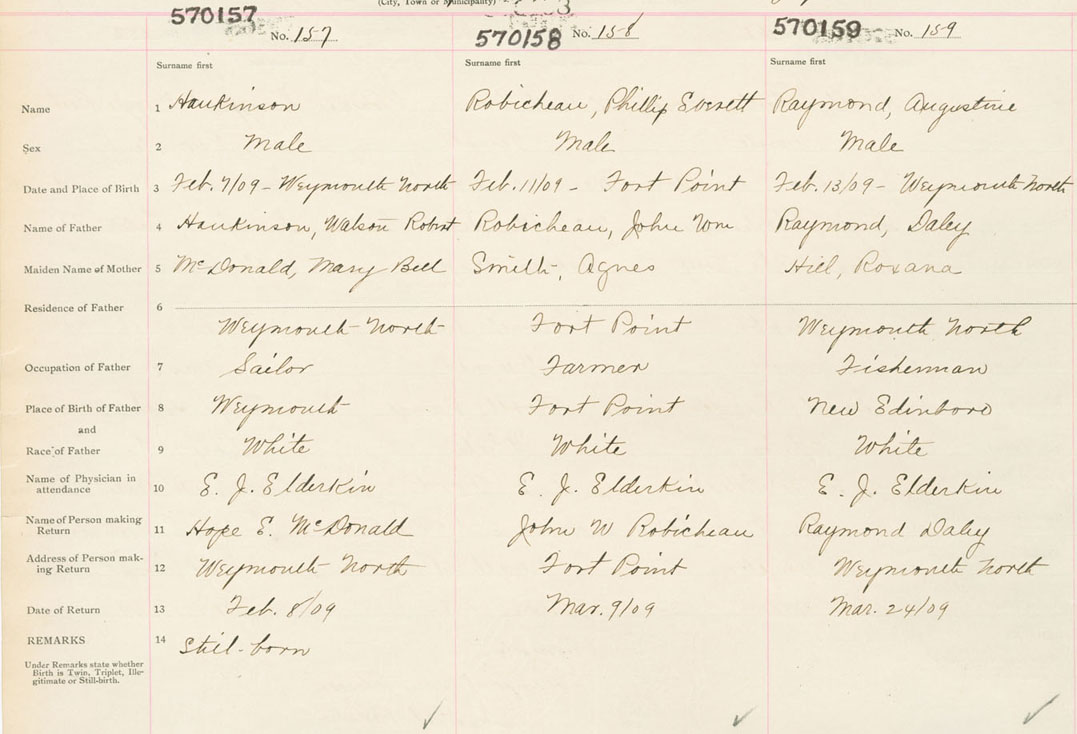 (City, Town or Municipality)
570157 No. 157 570158 No. 158 570159 No. 159
Surname first Surname first Surname first
Name 1 Hankinson Robicheau, Phillip Everett Raymond, Augustine
Sex 2 Male Male Male
Date and Place of Birth 3 Feb. 7/09 - Weymouth North Feb. 11/09 - Fort Point Feb. 13/09 - Weymouth North
Name of Father 4 Hankinson, Watson Robert Robicheau, John Wm Raymond, Daley
Maiden Name of Mother 5 McDonald, Mary Bell Smith, Agnes Hill, Roxana
Residence of Father 6
Weymouth North Fort Point Weymouth North
Occupation of Father 7 Sailor Farmer Fisherman
Place of Birth of Father 8 Weymouth Fort Point New Edinboro
and
Race of Father 9 White White White
Name of Physician in
attendance 10 E. J. Elderkin E. J. Elderkin E. J. Elderkin
Name of Person making
Return 11 Hope E. McDonald John W Robicheau Raymond Daley
Address of Person mak-
ing Return 12 Weymouth North Fort Point Weymouth North
Date of Return 13 Feb. 8/09 Mar. 9/09 Mar. 24/09
REMARKS 14 Still-born
Under Remarks state whether
Birth is Twin, Triplet, Ille-
gitimate or Still-birth.